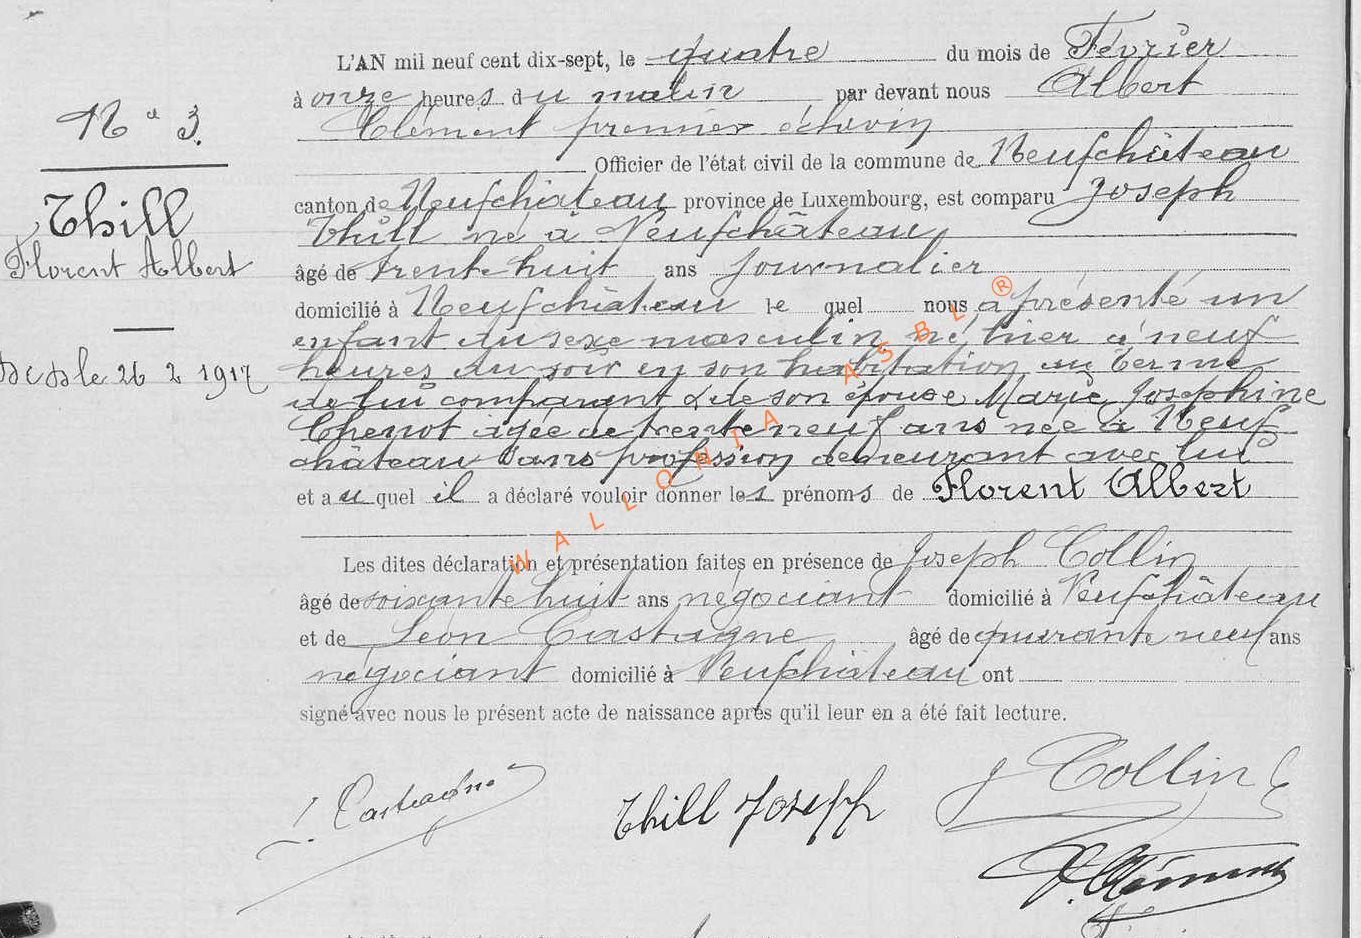 L'AN mil neuf cent dix-sept, le quatre du mois de Février
à onze heures du matin par devant nous Albert
Clément premier échevin
Officier de l'état civil de la commune de Neufchâteau
canton de Neufchâteau province de Luxembourg, est comparu Joseph
Thill né à Neufchâteau
âgé de trente huit ans journalier
domicilié à Neufchâteau le quel nous a présenté un
enfant du sexe masculin, né hier à neuf
heures du soir en son habitation au Terme
de lui comparant & de son épouse Marie Josephine
Chenot âgée de trente neuf ans née à Neuf
château sans profession demeurant avec lui
et au quel il a déclaré vouloir donner les prénoms de Florent Albert
Les dites déclaration et présentation faites en présence de Joseph Collin
âgé de soixante huit ans négociant domicilié à Neufchâteau
et de Léon Castagne âgé de quarante neuf ans
négociant domicilié à Neufchâteau ont
signé avec nous le présent acte de naissance après qu'il leur en a été fait lecture.
N° 3.
Thill
Florent Albert
le 26 2 1917
WALLONIA ASBL ®
L. Castagne
Thill Joseph
J Collin
A. Clément